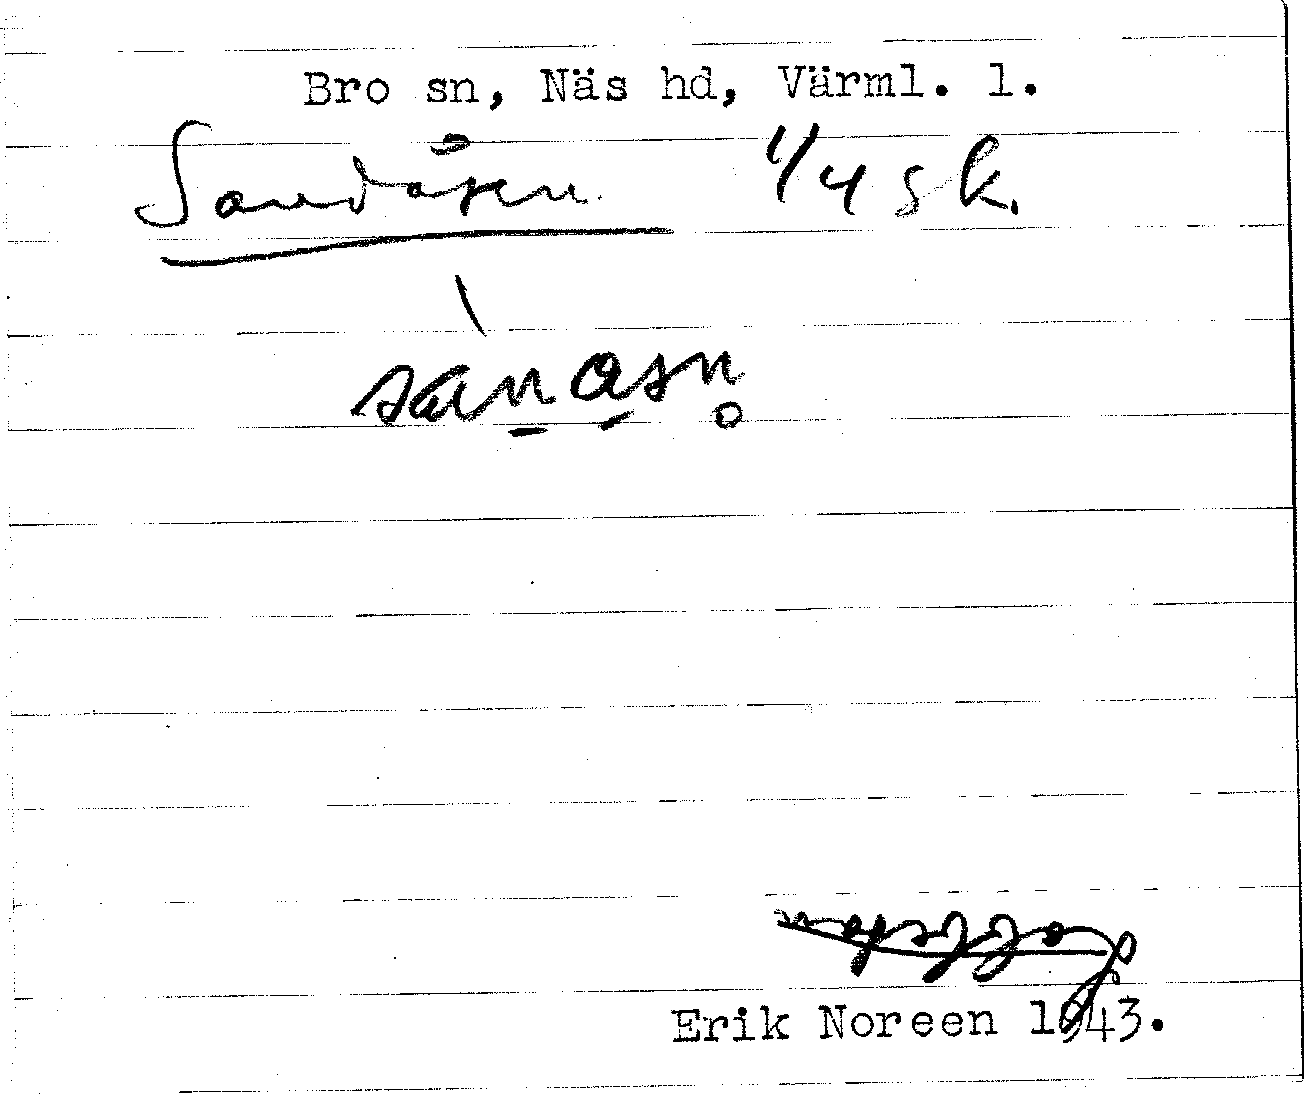 Bro sn, Näs hd, Värml. l.
Sandåsen 1/4 sk.
Erik Noreen 1943.